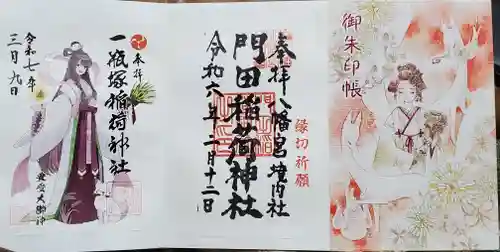 御朱印帳
奉拝
八幡宮境内社
門田稲荷神社
縁切祈願
令和六年二月十二日
奉拝
一瓶塚稲荷神社
令和七年
三月九日